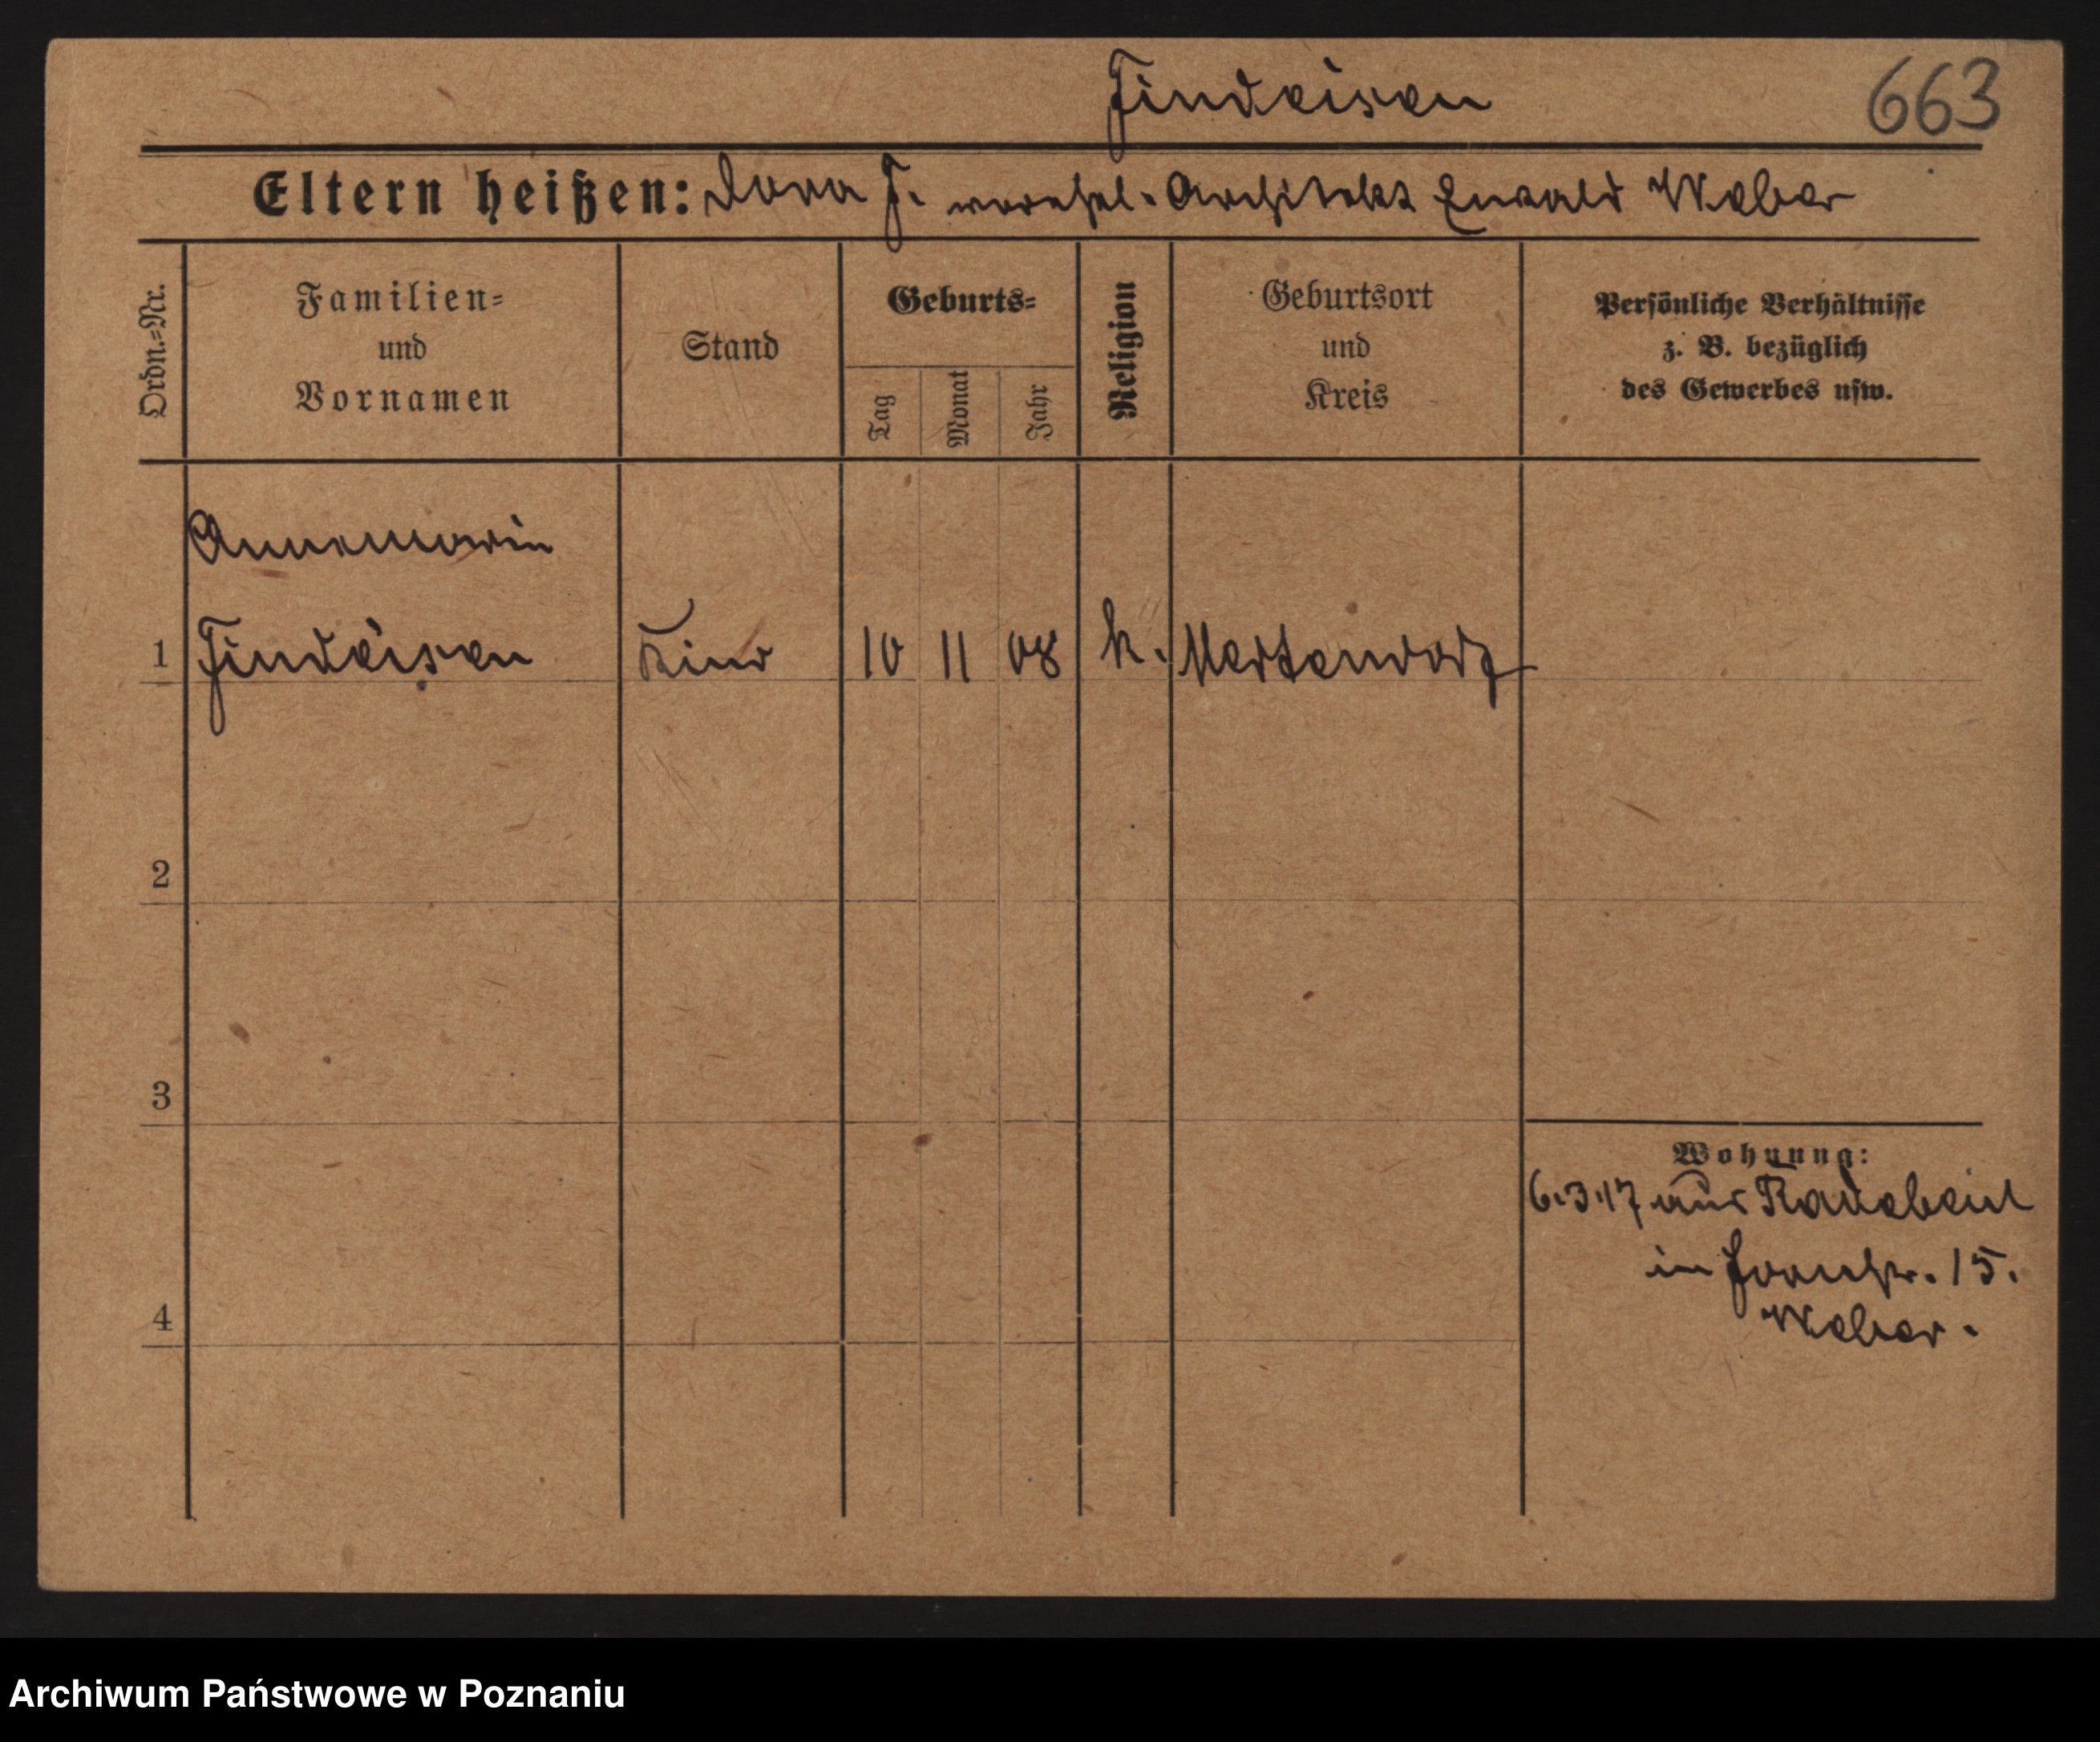 Findeisen
663
Eltern heißen: Dora F. verehel. Architekt Ewald Weber
Ordn.=Nr.
Familien=
und
Vornamen
Stand
Geburts=
Tag
Monat
Jahr
Religion
Geburtsort
und
Kreis
Persönliche Verhältnisse
z. B. bezüglich
des Gewerbes usw.
Annemarie
1 Findeisen Kind 10 11 08 k. Mertendorf
2
3
Wohnung:
6.3.17 aus Radebeul
in 15.
4
Weber.
Archiwum Państwowe w Poznaniu